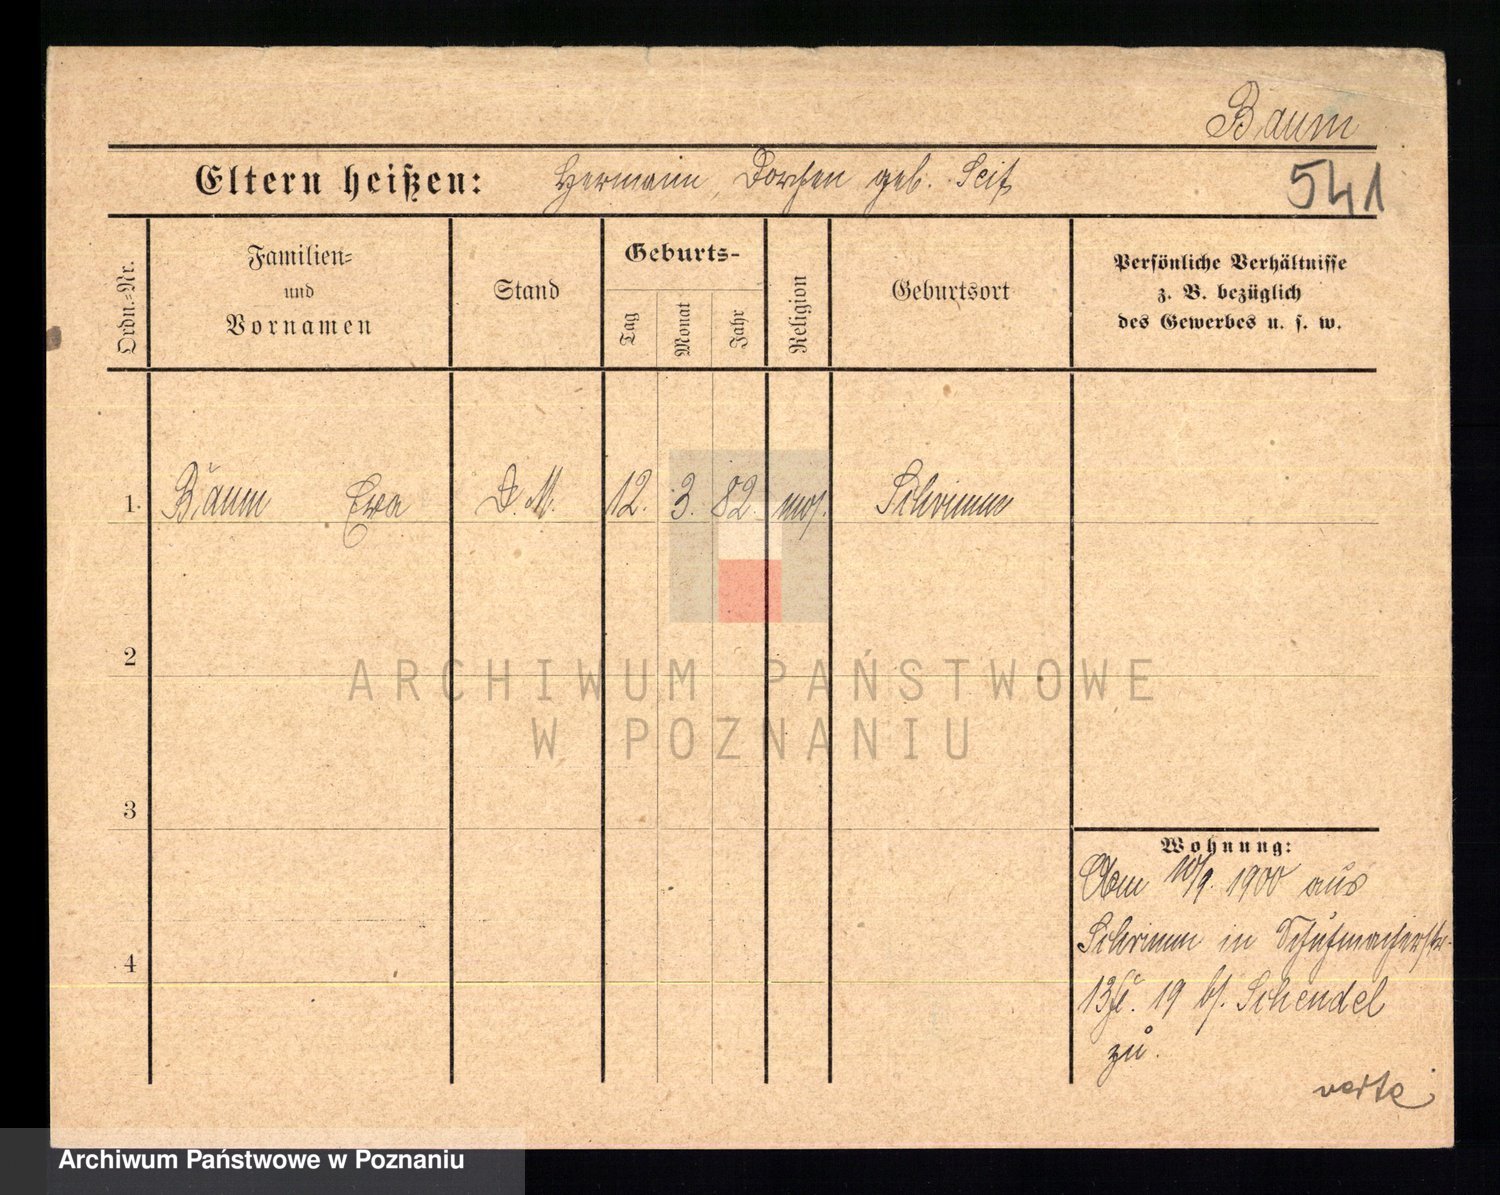 Baum
Eltern heißen: Hermann, Dorchen geb. Seif
541
Ordn.-Nr.
Familien-
und
Vornamen
Stand
Geburts-
Tag
Monat
Jahr
Religion
Geburtsort
Persönliche Verhältnisse
z. B. bezüglich
des Gewerbes u. s. w.
1. Baum Ewa D. M. 12. 3. 82. mos. Schrimm
2
3
4
Wohnung:
Vom 10/9. 1900 aus
Schrimm in Schuhmacherstr.
13 19 bs. Schendel
zu.
verte
ARCHIWUM PAŃSTWOWE
W POZNANIU
Archiwum Państwowe w Poznaniu